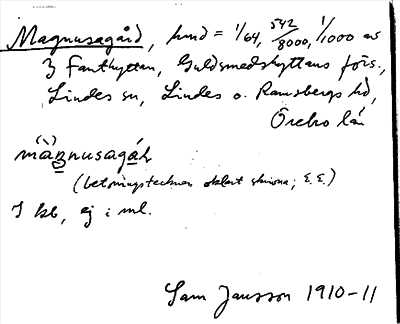 Magnusagård, hmd = 1/64, 542/8000, 1/1000 av
3 Fanthyttan, Guldsmedshyttansförs.,
Lindes sn, Lindes o. Ramsbergs hd,
Örebro län
mánnusagáḷ
(betoningstecknen oklart skrivna; E.E.)
I kb, ej i ml.
Sam Jansson 1910-11